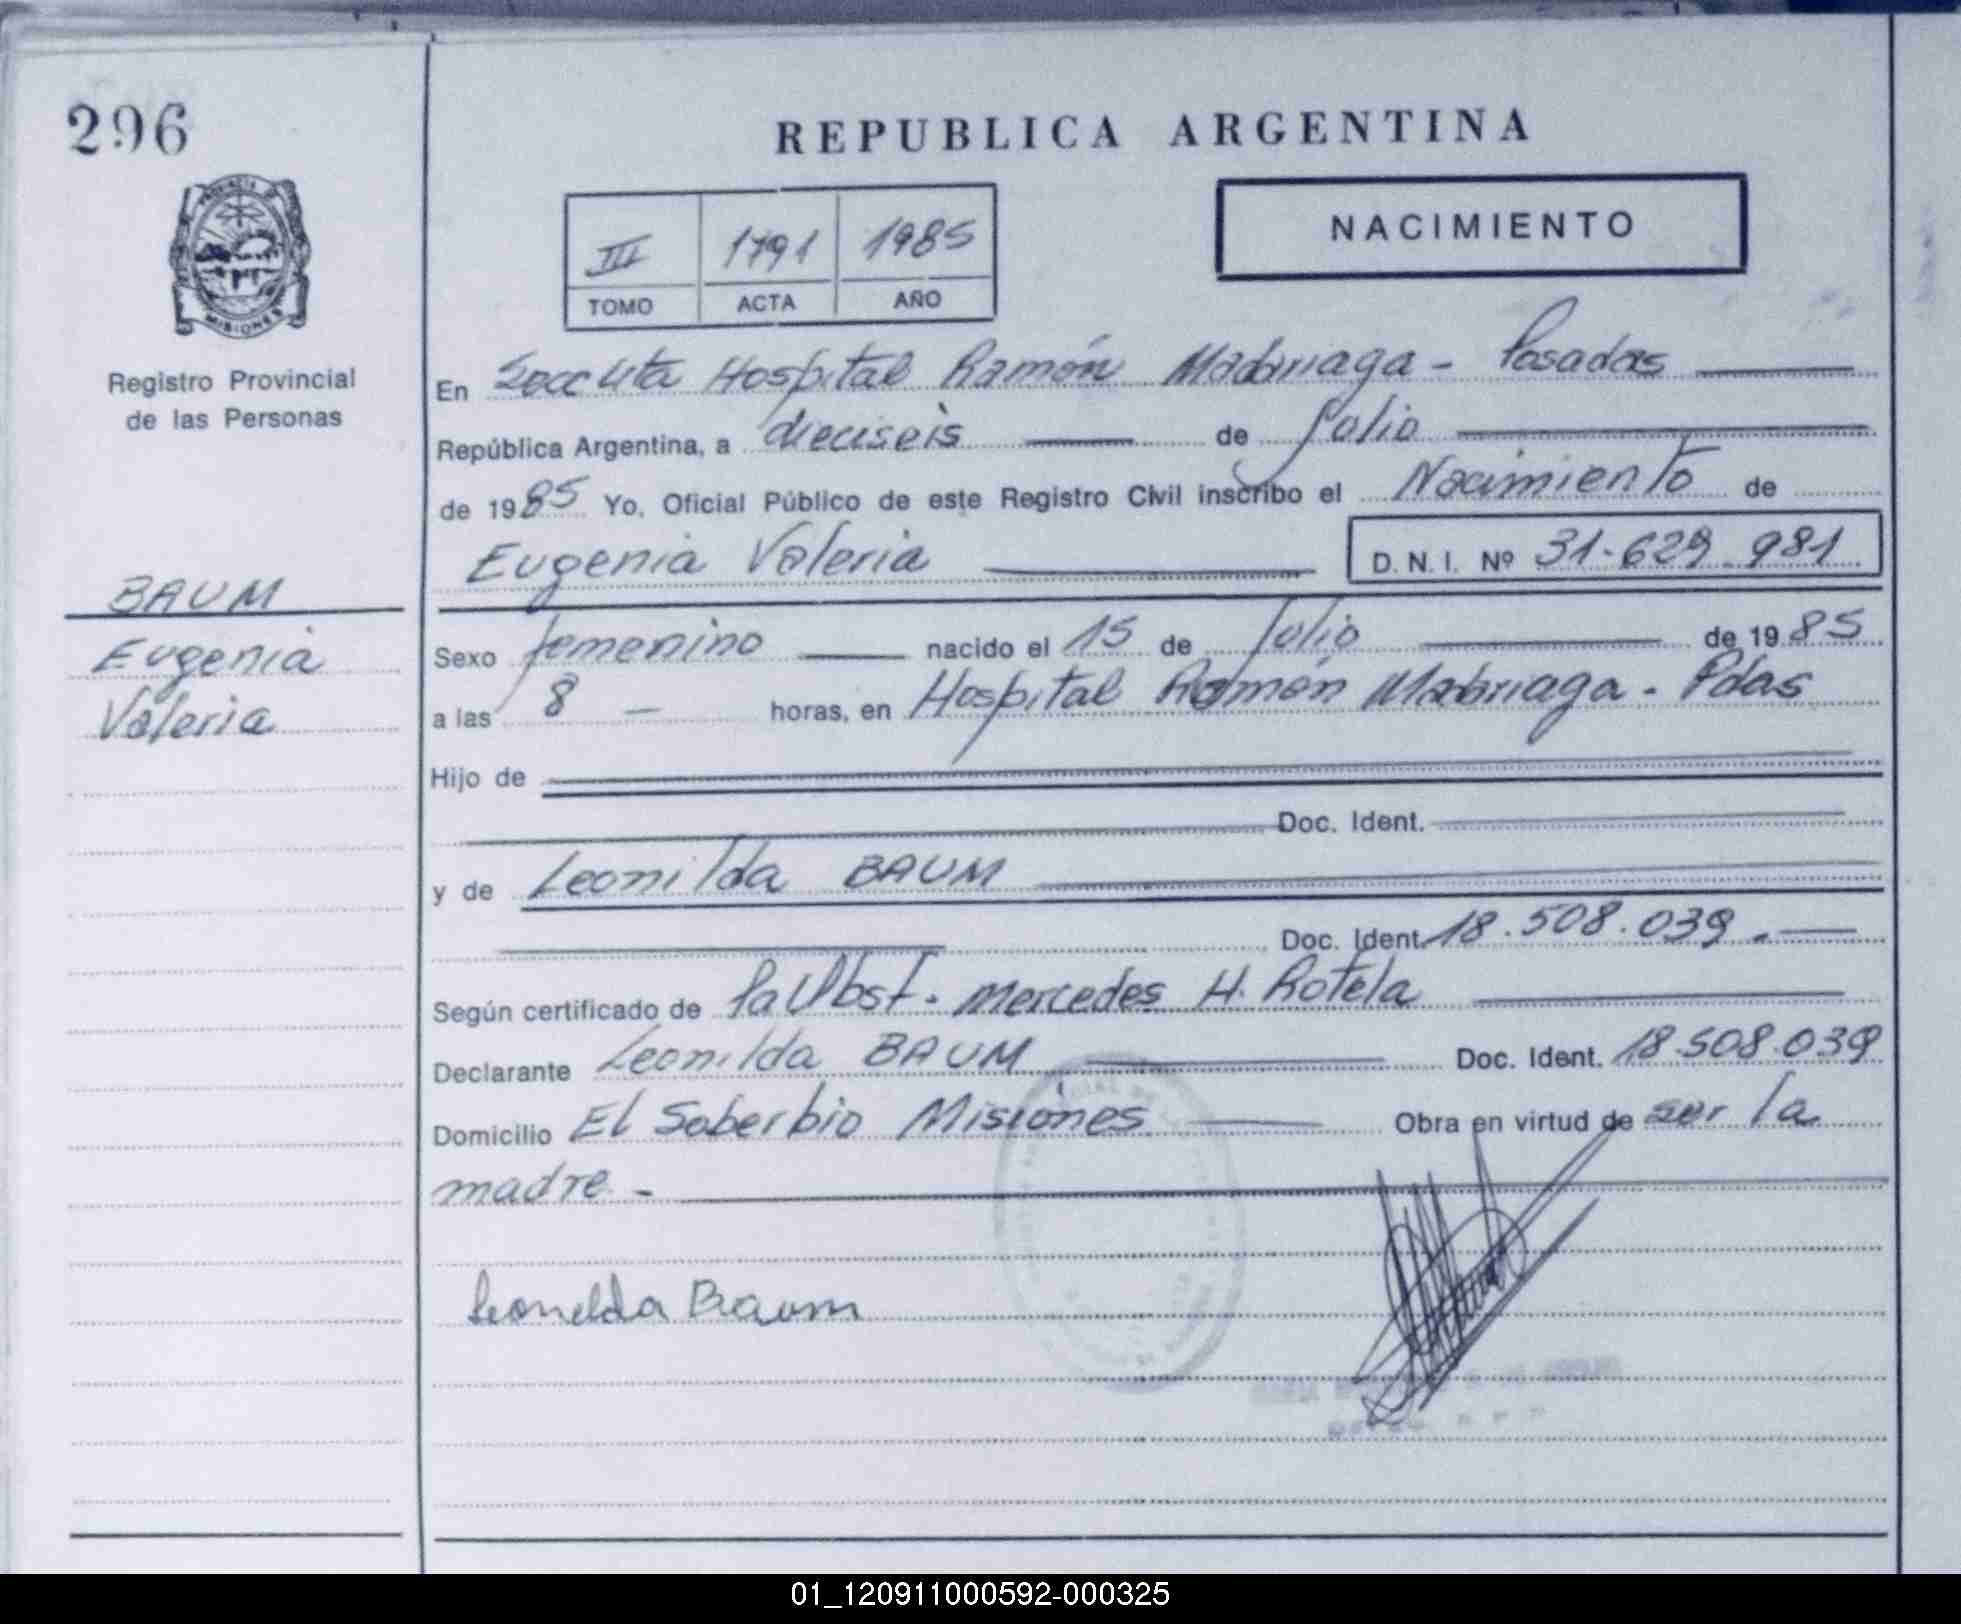 296
REPUBLICA ARGENTINA
III 1791 1985
TOMO ACTA AÑO
NACIMIENTO
MISIONES
Registro Provincial
de las Personas
En Secc Hospital Ramón Madariaga - Posadas
República Argentina, a dieciseis de Julio
de 1985 Yo, Oficial Público de este Registro Civil inscribo el Nacimiento de
Eugenia Valeria D.N.I. Nº 31.629.981
BAUM
Eugenia
Valeria
Sexo femenino nacido el 15 de Julio de 1985
a las 8 - horas, en Hospital Ramón Madariaga - Pdas
Hijo de
Doc. Ident.
y de Leonilda BAUM
Doc. Ident. 18.508.039.-
Según certificado de Obst. Mercedes H. Rotela
Declarante Leonilda BAUM Doc. Ident. 18.508.039
Domicilio El Soberbio Misiones Obra en virtud de ser la
madre -
Leonelda Baum
01_120911000592-000325